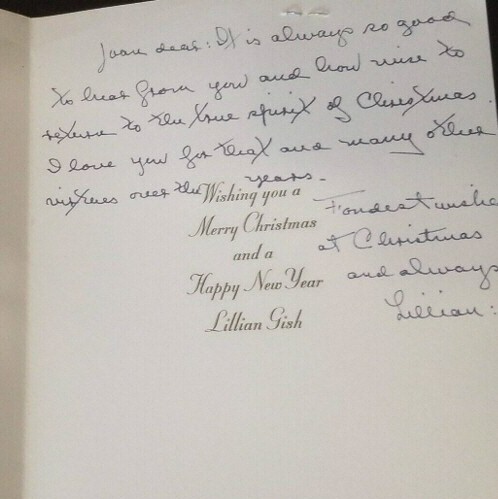 Joan dear: It is always so good
to hear from you and how nice to
return to the true spirit of Christmas.
I love you for that and many other
virtues over the years.
Wishing you a
Merry Christmas
and a
Happy New Year
Lillian Gish
Fondest wishes
at Christmas
and always
Lillian: